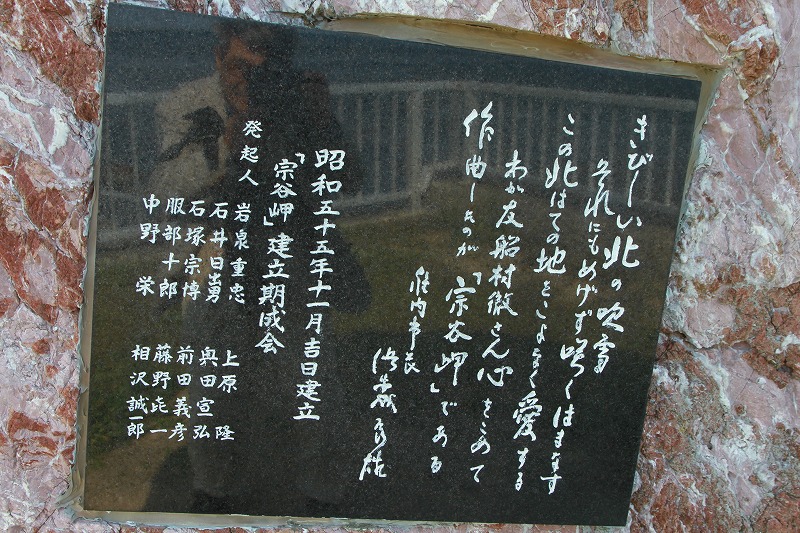 きびしい北の吹雪
それにもめげず咲くはまなす
この北はての地をこよなく愛する
わが友船村徹さん心をこめて
作曲したのが「宗谷岬」である
稚内市長 浜森辰雄
昭和五十五年十一月吉日建立
「宗谷岬」建立期成会
発起人
岩泉重忠
石井日出勇
石塚宗博
服部十郎
中野栄
上原隆
奥田宣弘
前田義彦
藤野㐂一
相沢誠一郎